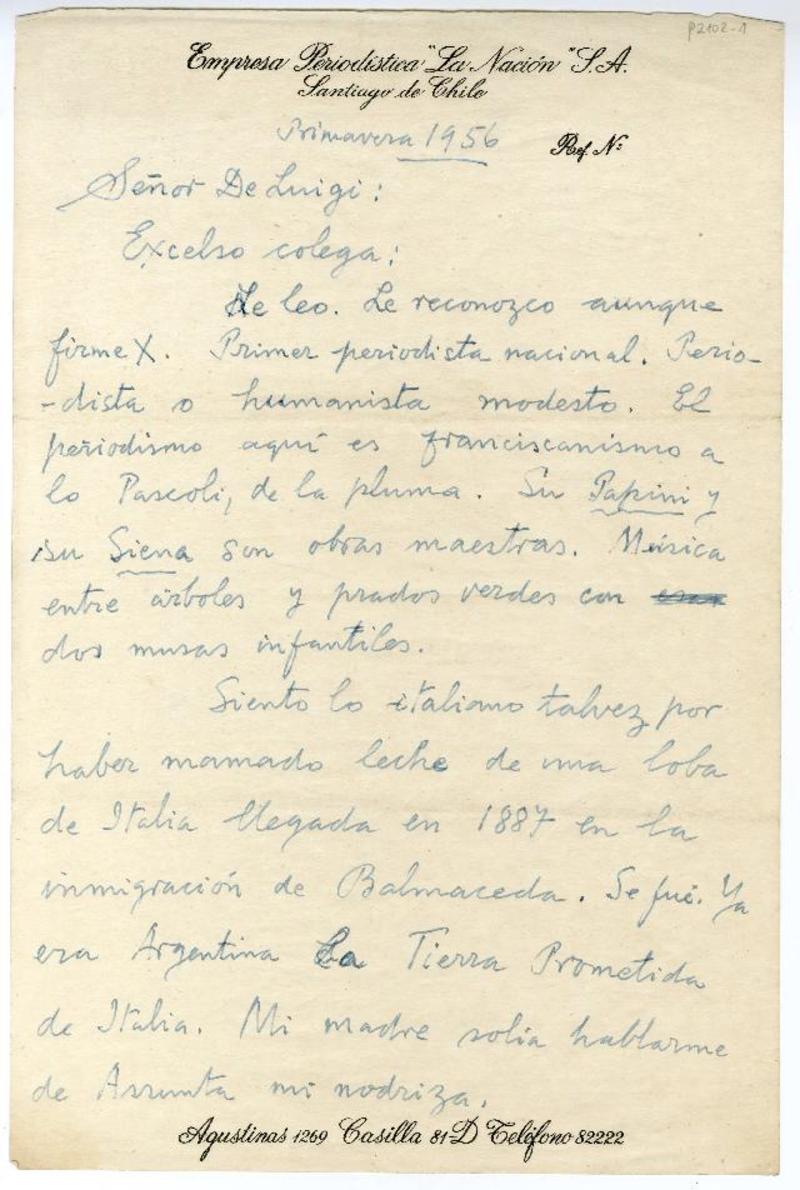 P2102-1
Empresa Periodística "La Nación" S.A.
Santiago de Chile
Primavera 1956
Ref. Nº
Señor De Luigi:
Excelso colega:
Le leo. Le reconozco aunque
firme X. Primer periodista nacional. Perio-
-dista o humanista modesto. El
periodismo aquí es franciscanismo a
lo Pascoli, de la pluma. Su Papini y
su Siena son obras maestras. Música
entre árboles y prados verdes con
dos musas infantiles.
Siento lo italiano talvez por
haber mamado leche de una loba
de Italia llegada en 1887 en la
inmigración de Balmaceda. Se fué. Ya
era Argentina La Tierra Prometida
de Italia. Mi madre solia hablarme
de Assunta mi nodriza.
Agustinas 1269 Casilla 81-D Teléfono 82222